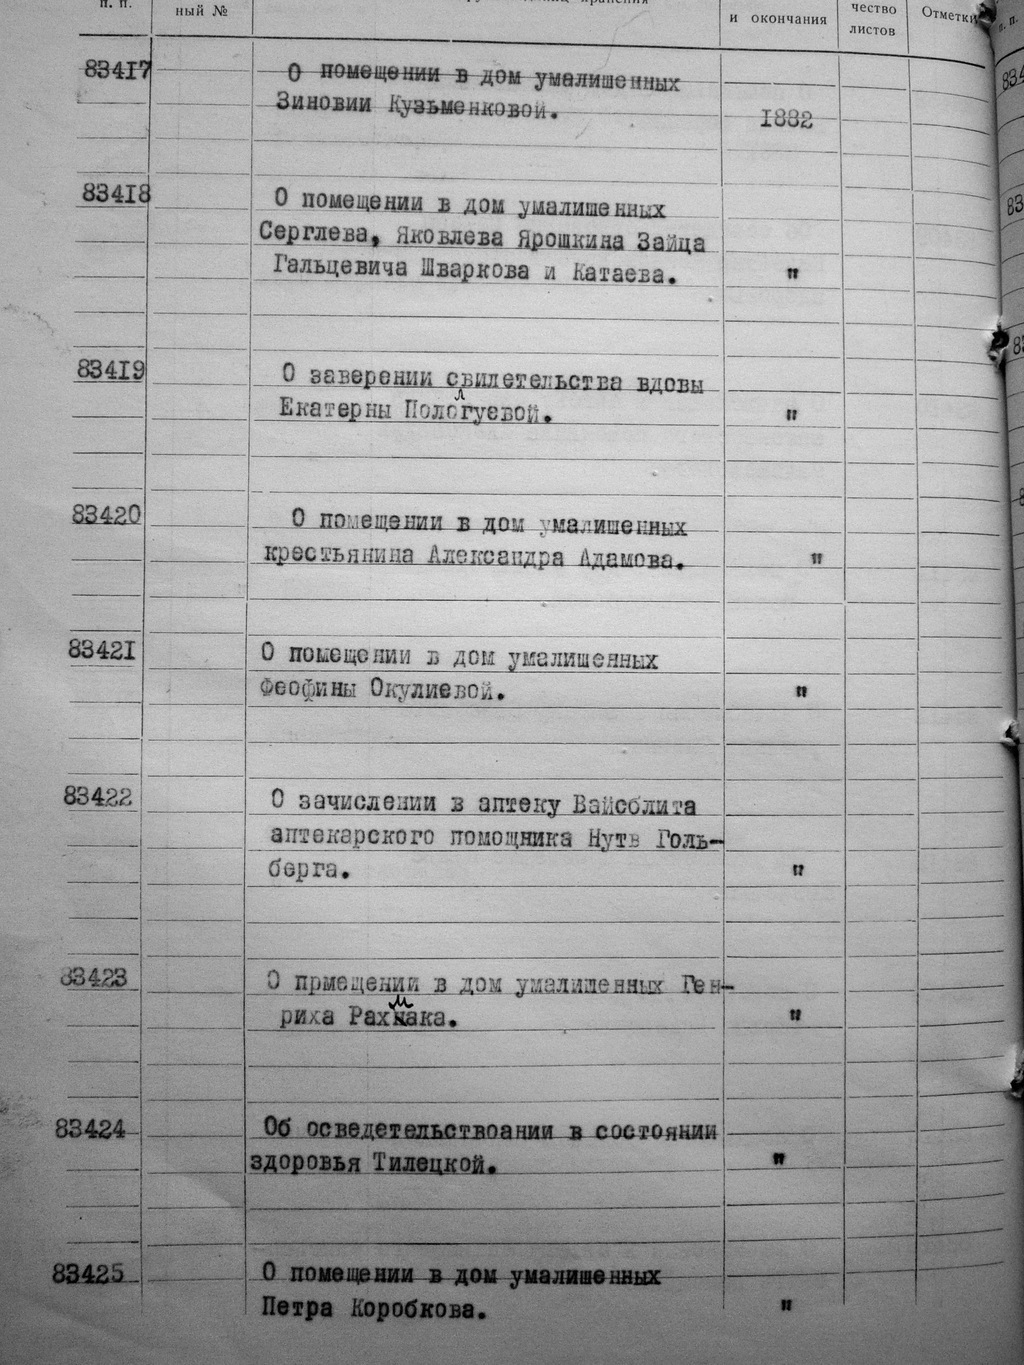 п. п.
ный №
хранения
и окончания
чество
листов
Отметки
п. п.
83417
О помещении в дом умалишенных
Зиновии Кузьменковой.
1882
83418
О помещении в дом умалишенных
Серглева, Яковлева Ярошкина Зайца
Гальцевича Шваркова и Катаева.
"
83419
О заверении свилетельства вдовы
л
Екатерны Пологуевой.
"
83420
О помещении в дом умалишенных
крестьянина Александра Адамова.
"
83421
О помещении в дом умалишенных
Феофины Окулиевой.
"
83422
О зачислении в аптеку Вайсблита
аптекарского помощника Нутв Голь-
берга.
"
83423
О прмещении в дом умалишенных Ген-
м
риха Рахмака.
"
83424
Об осведетельствоании в состоянии
здоровья Тилецкой.
"
83425
О помещении в дом умалишенных
Петра Коробкова.
"